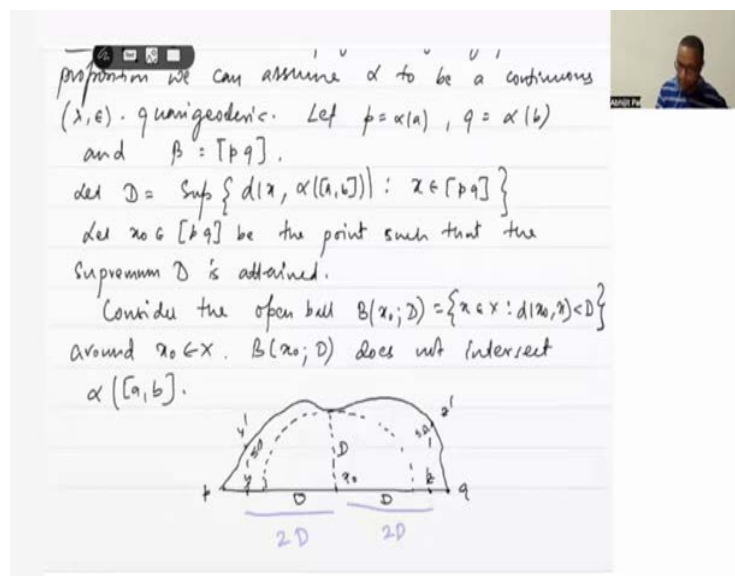 proposition we can assume α to be a continuous
(λ,ϵ)-quasigeodesic. Let p = α(a), q = α(b)
and β = [p q].
Let D = Sup { d(x, α([a,b])) : x ∈ [p q] }
Let x₀ ∈ [p q] be the point such that the
Supremum D is attained.
Consider the open ball B(x₀; D) = {x ∈ X : d(x₀, x) < D}
around x₀ ∈ X. B(x₀; D) does not intersect
α([a, b].
y' z'
D
p y D x₀ D z q
2D 2D